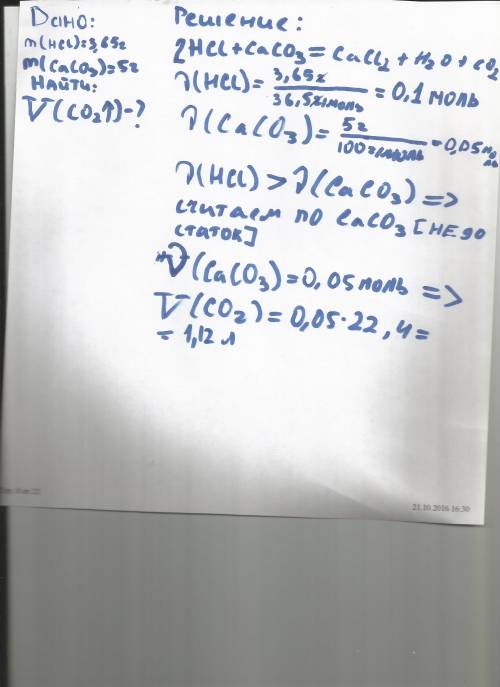 Дано:
m(HCl)=3,65г
m(CaCO3)=5г
Найти:
V(CO2↑)-?
Решение:
2HCl+CaCO3=CaCl2+H2O+CO2
ν(HCl)=3,65г/36,5г/моль=0,1моль
ν(CaCO3)=5г/100г/моль=0,05мо
ль
ν(HCl)>ν(CaCO3)=>
считаем по CaCO3[недо
статок]
ν(CaCO3)=0,05моль=>
V(CO2)=0,05·22,4=
=1,12л
21.10.2016 16:30